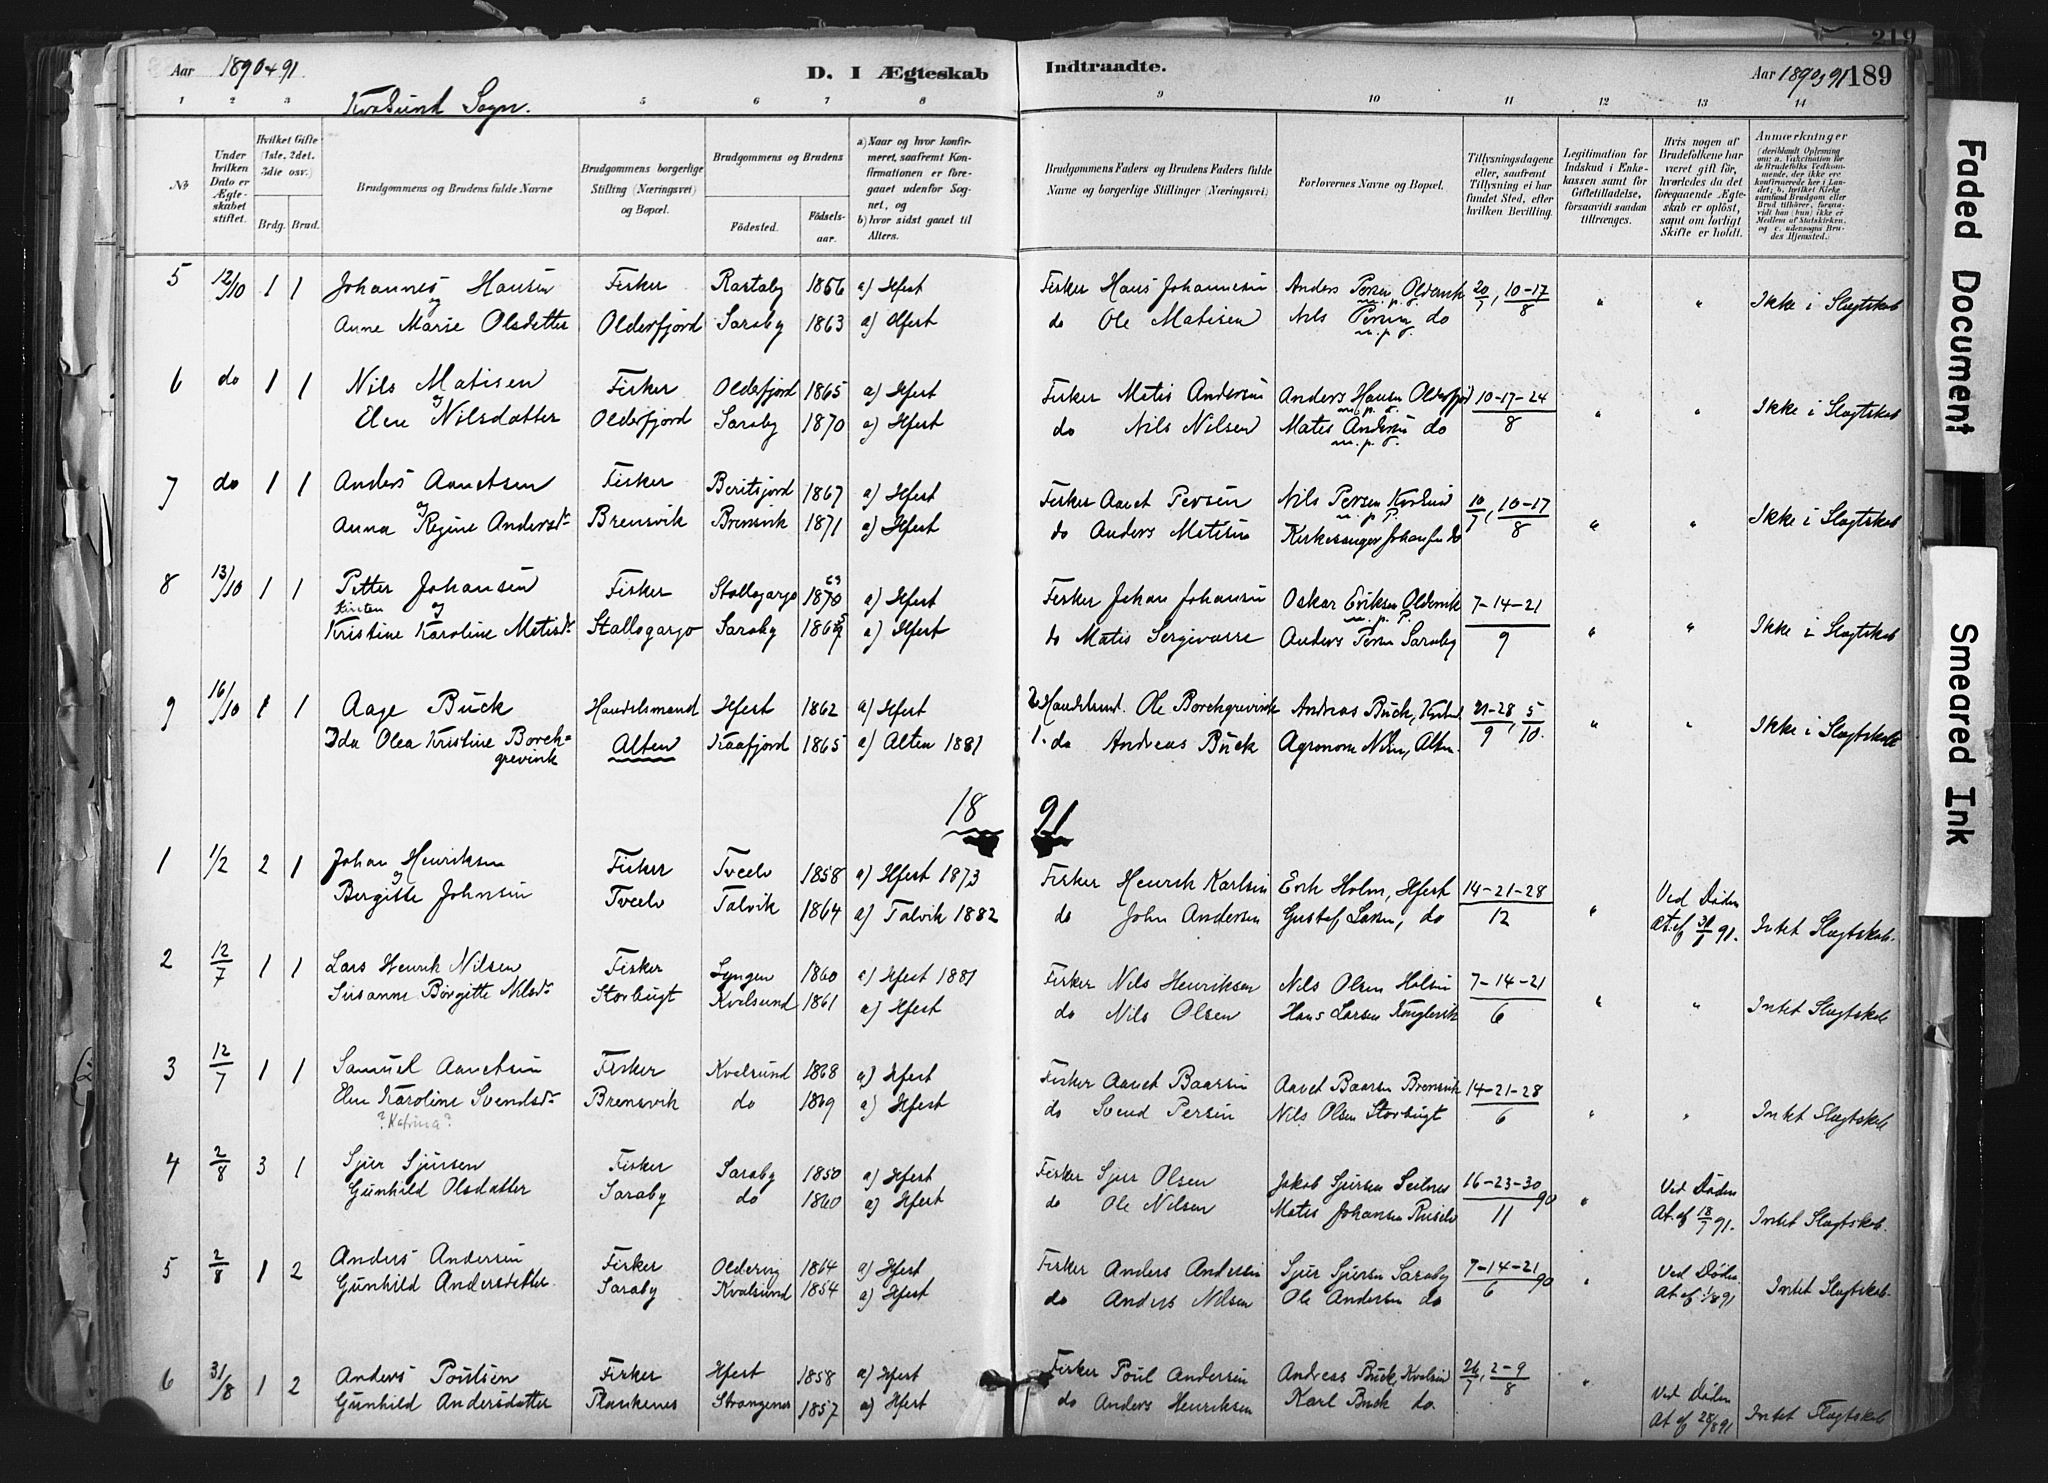 219
Aar 1890 & 91.
D. I Ægteskab
Indtraadte.
Aar 1890 & 91 189
1 2 3 5 6 7 8 9 10 11 12 13 14
Kvalsund Sogn.
No
Under hvilken Dato er Ægteskabet stiftet.
Hvilket Gifte (1ste, 2det, 3die osv.)
Brdg. Brud.
Brudgommens og Brudens fulde Navne
Brudgommens borgerlige Stilling (Næringsvei) og Bopæl.
Brudgommens og Brudens
Födested.
Födselsaar.
a) Naar og hvor konfirmeret, saafremt Konfirmationen er foregaaet udenfor Sognet, og
b) hvor sidst gaaet til Alters.
Brudgommens Faders og Brudens Faders fulde Navne og borgerlige Stillinger (Næringsvei)
Forlovernes Navne og Bopæl.
Tillysningsdagene eller, saafremt Tillysning ei har fundet Sted, efter hvilken Bevilling.
Legitimation for Indskud i Enkekassen samt for Giftetilladelse, forsaavidt saadan tiltrænges.
Hvis nogen af Brudefolkene har været gift før, hvorledes da det foregaaende Ægteskab er oplöst, samt om lovligt Skifte er holdt.
Anmærkninger (deriblandt Oplysning om: a. Vakcination for de Brudefolks Vedkommende, der ikke ere konfirmerede her i Landet; b. hvilket Kirkesamfund Brudgom eller Brud tilhörer, forsaavidt han (hun) ikke er Medlem af Statskirken, og c. udensogns Brudes Hjemsted.)
5 12/10 1 1 Johannes Hansen Fisker Rastaby 1866 a) Hfest Fisker Hans Johannesen Anders Persen Oldervik 20/7, 10-17/8 " " Ikke i Slægtskab
og m. p. P.
Anne Marie Olsdatter Olderfjord Saraby 1863 a) Hfest do Ole Matisen Nils Persen do
m. p. P.
6 do 1 1 Nils Matisen Fisker Olderfjord 1865 a) Hfest Fisker Matis Andersen Anders Hansen Olderfjord 10-17-24/8 " " Ikke i Slægtskab
og m. p. P.
Elen Nilsdatter Olderfjord Saraby 1870 a) Hfest do Nils Nilsen Matis Andersen do
m. p. P.
7 do 1 1 Anders Aanetsen Fisker Beritsjord 1867 a) Hfest Fisker Aanet Persen Nils Persen Kvalsund 10/7, 10-17/8 " " Ikke i Slægtskab
og m. p. P.
Anna Regine Andersdr Brensvik Brensvik 1871 a) Hfest do Anders Matisen Kirkesanger Johansen do
8 13/10 1 1 Petter Johansen Fisker Stallogargo 1870 63 a) Hfest Fisker Johan Johansen Oskar Eriksen Oldervik 7-14-21/9 " " Ikke i Slægtskab
Kirsten og m. p. P.
Kristine Karoline Matisdr Stallogargo Saraby a) Hfest do Matis Sergivarre Anders Persen Saraby
9 16/10 1 1 Aage Buck Handelsmand Hfest 1862 a) Hfest 2. Handelsmd. Ole Borchgrevink Andreas Buck, Kvlsd. 21-28/9, 5/10. " " Ikke i Slægtskab
Ida Olea Kristine Borchgrevink Alten Kaafjord 1865 a) Alten 1881 1. do Andreas Buck Agronom Nilsen, Alten
18 91
1 1/2 2 1 Johan Henriksen Fisker Tveelv 1858 a) Hfest 1873 Fisker Henrik Karlsen Erik Holm, Hfest 14-21-28/12 " Ved Døden
og
Bergitte Johnsen Tveelv Talvik 1864 a) Talvik 1882 do John Andersen Gustaf Larsen, do At. af 31/1 91. Intet Slægtskab.
2 12/7 1 1 Lars Henrik Nilsen Fisker Lyngen 1860 a) Hfest 1881 Fisker Nils Henriksen Nils Olsen Holsen 7-14-21/6 " " Intet Slægtskab
Susanne Borgitte Nilsdr Storbugt Kvalsund 1861 a) Hfest do Nils Olsen Hans Larsen
3 12/7 1 1 Samuel Aanetsen Fisker Kvalsund 1868 a) Hfest Fisker Aanet Baarsen Aanet Baarsen Brensvik 14-21-28/6 " " Intet Slægtskab
Elen Karoline Svendsdr Brensvik do 1869 a) Hfest do Svend Persen Nils Olsen Storbugt
? Katrina ?
4 2/8 3 1 Sjur Sjursen Fisker Saraby 1850 a) Hfest Fisker Sjur Olsen Jakob Sjursen Seilnes 16-23-30/11 90 " Ved Døden
Gunhild Olsdatter Saraby do 1860 a) Hfest do Ole Nilsen Matis Johansen Ruselv At. af 18/7 91. Intet Slægtskab.
5 2/8 1 2 Anders Andersen Fisker Oldervig 1864 a) Hfest Fisker Anders Andersen Sjur Sjursen Saraby 7-14-21/6 90 " Ved Døden
Gunhild Andersdatter Saraby Kvalsund 1854 a) Hfest do Anders Nilsen Ole Andersen do At. af 1/8 91 Intet Slægtskab.
6 31/8 1 2 Anders Poulsen Fisker Hfest 1858 a) Hfest Fisker Poul Andersen Andreas Buck, Kvalsund 26/7, 2-9/8 " Ved Døden
Gunhild Andersdatter Plankenes Strangenes 1857 a) Hfest do Anders Henriksen Karl Buck do. At. af 28/8 91 Intet Slægtskab
Faded Document
Smeared Ink